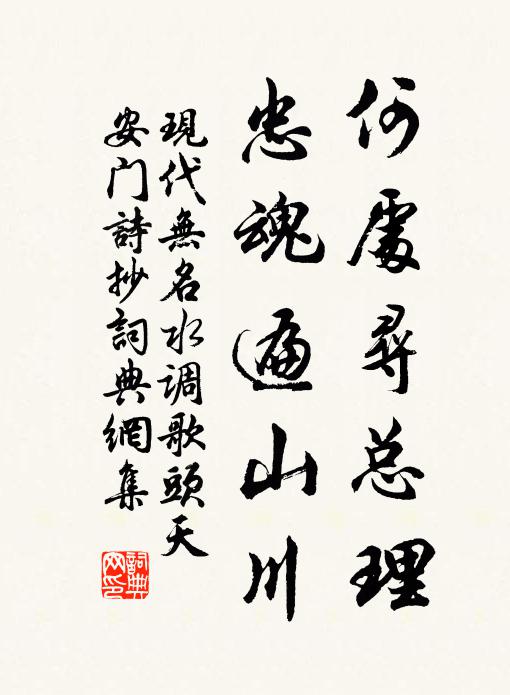 何處尋总理
忠魂遍山川
現代無名水调歌頭天
安门詩抄詞典網集
詞典
网印